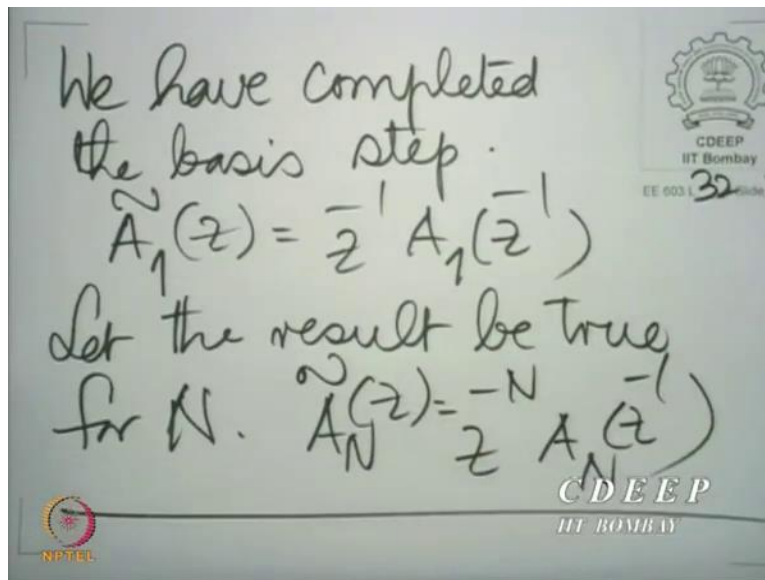 We have completed
the basis step.
Ã₁(z) = z⁻¹ A₁(z⁻¹)
Let the result be true
for N. Ã_N(z) = z^-N A_N(z⁻¹)
CDEEP
IIT Bombay
EE 603 L 32 Slide
CDEEP
IIT BOMBAY
NPTEL